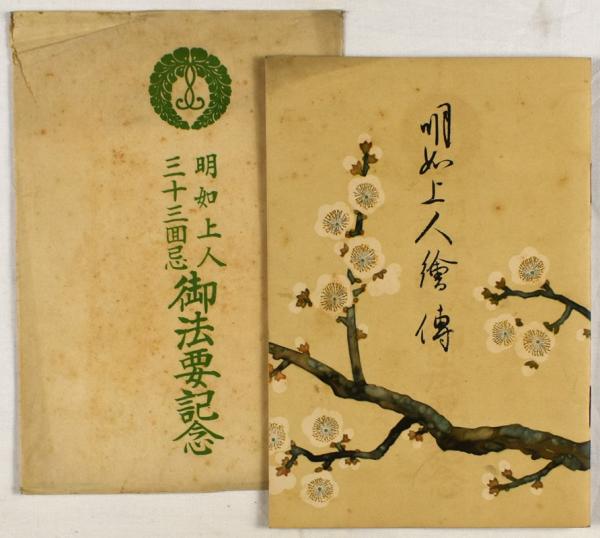 明如上人繪傳
明如上人
三十三囬忌
御法要記念